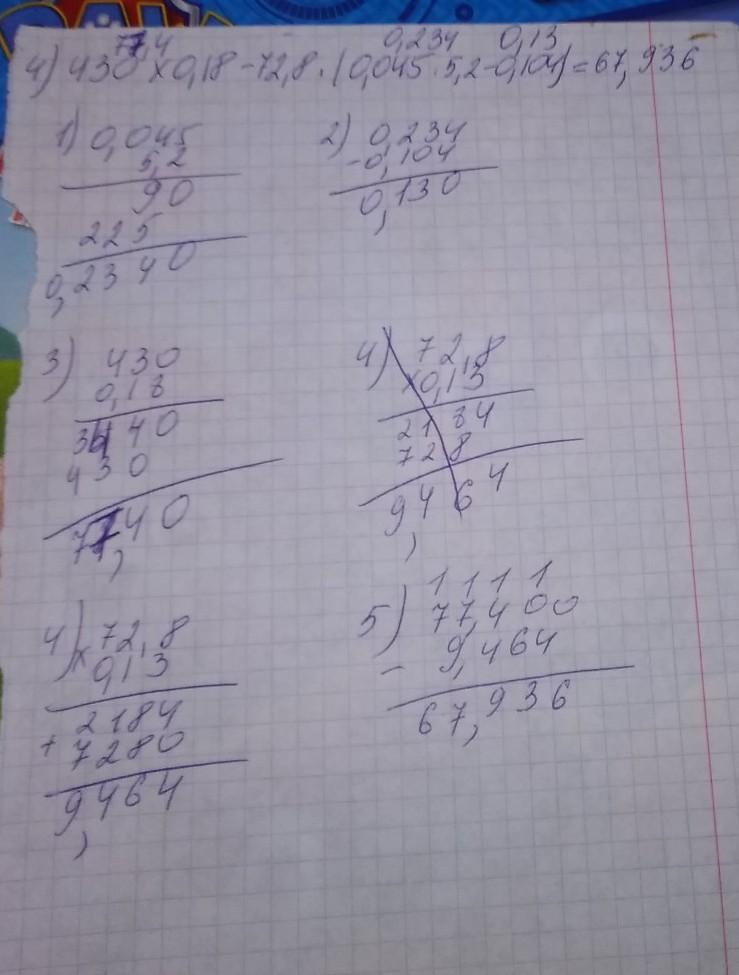 77,4 0,234 0,13
4) 430 × 0,18 - 72,8 · (0,045 · 5,2 - 0,104) = 67,936
1) 0,045
5,2
90
225
0,2340
2) 0,234
- 0,104
0,130
3) 430
0,18
3440
430
77,40
4) 72,8
× 0,13
2184
728
9,464
4) 72,8
× 0,13
2184
+ 7280
9,464
5) 1 1 1 1
77,400
- 9,464
67,936